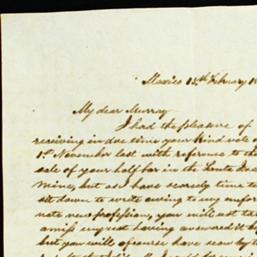 Mexico 12th February 18
My dear Murray
I had the pleasure of
receiving in due time your kind note of
1st November last with reference to the
sale of your half bar in the Santa
Mine, but as I have scarcely time to
sit down to write owing to my unfor
nate new profession, you will not ta
amiss my not having answered it
but you will of course have seen by t